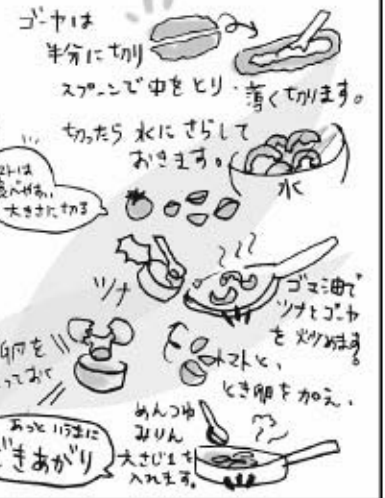 ゴーヤは
半分に切り
スプーンで中をとり、薄く切ります。
切ったら 水に さらして
おきます。
水
トマトは
食べやすい
大きさに切る
ツナ
ゴマ油で
ツナとゴーヤ
を 炒めます。
卵を
っておく
トマトと、
とき卵を加え、
めんつゆ
みりん
大さじ1を
入れます。
あっと いうまに
できあがり